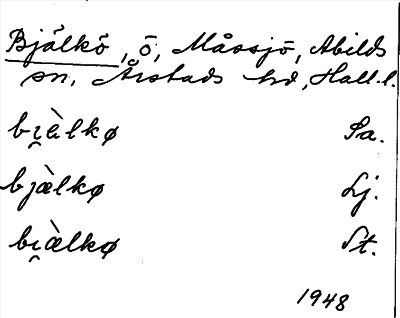 Bjälkö, ö, Måssjö, Abilds
sn, Årstads hd, Hall. l.
bi̯ä̀lkø Sa.
bjä̀lkø Lj.
bi̯ä̀lkø St.
1948